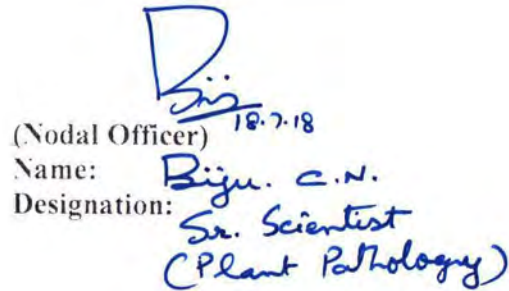 18.7.18
(Nodal Officer)
Name: Biju. C.N.
Designation: Sr. Scientist
(Plant Pathology)